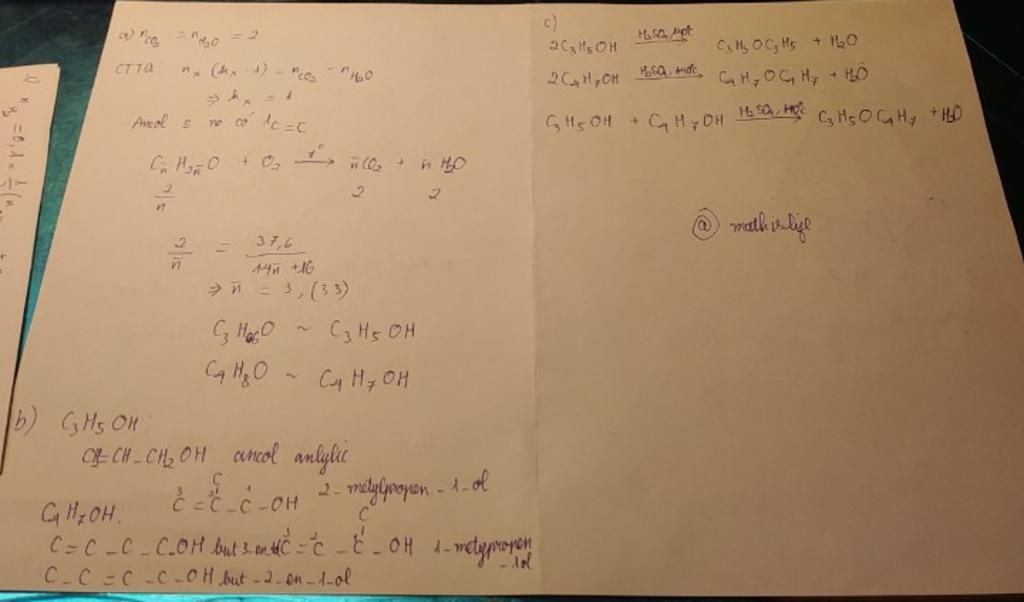 a) nCO2 = nH2O = 2
CTTQ: nx (kx - 1) = nCO2 - nH2O
⇒ kx = 1
Ancol no có 1 C=C
Cn̄H2n̄O + O2 —t°→ n̄CO2 + n̄ H2O
2/n̄ 2 2
2/n̄ = 37,6/(14n̄ + 16)
⇒ n̄ = 3,(33)
C3H6O ~ C3H5OH
C4H8O ~ C4H7OH
b) C3H5OH:
CH2=CH-CH2OH ancol anlylic
C
C4H7OH: C3=C2-C1-OH 2-metylpropen-1-ol
C
C=C-C-C-OH but-3-en C3=C2-C1-OH 1-metypropen
-1ol
C-C=C-C-OH but-2-en-1-ol
c)
2C3H5OH —H2SO4, 140°C→ C3H5OC3H5 + H2O
2C4H7OH —H2SO4, 140°C→ C4H7OC4H7 + H2O
C3H5OH + C4H7OH —H2SO4, 140°C→ C3H5OC4H7 + H2O
@ mathislife